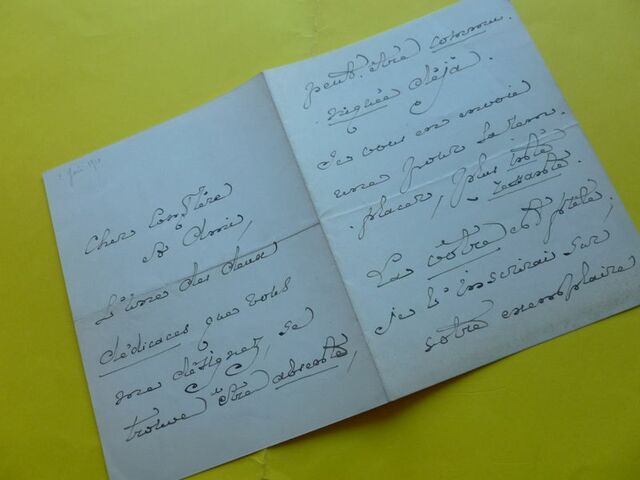 Cher Confrère
et Ami,
L'une des deux
dédicaces que vous
me désignez, se
trouve être absente,
peut-être commu-
niquée déjà.
Je vous en envoie
une pour la rem-
placer, plus inté-
ressante.
La vôtre est prête,
je l'inscrirai sur
votre exemplaire